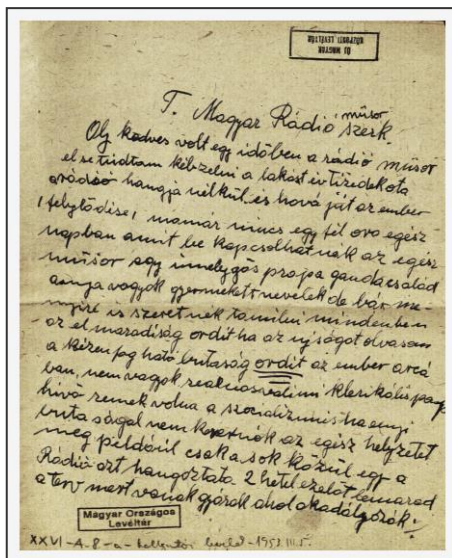 ÚJ MAGYAR
KÖZPONTI LEVÉLTÁR
T. Magyar Rádió műsor
szerk.
Olj kedves volt egy időben a rádió műsor
el se tudtam képzelni a lakást évtizedek óta
a rádió hangja nélkül, és hová ját az ember
(felylődise) mamár nincs egy fél ora egész
napban amit be kapcsolhatnák az egész
műsor agy émelygős propa ganda család
annya vagyok gyermeket nevelek de bár me-
nyire is szeretnék tanulni mindenben
az el maradiság ordit ha az ujságot olvasom
a kézen fog ható butaság ordit az ember arcá
ban, nem vagyok reakcios valimi klerikális
hivő remek volna a szocializmis ha enyi
buta sággal nem kevernék az egész helyzetet
meg például csak a sok közül egy a
Rádio ozt hangoztata 2 hétel ezalőt lemarad
a terv mert vanak gyárak ahol akadályozák.
Magyar Országos
Levéltár
XXVI-A-8-a - hallgatói levelek - 1953. III. 5.